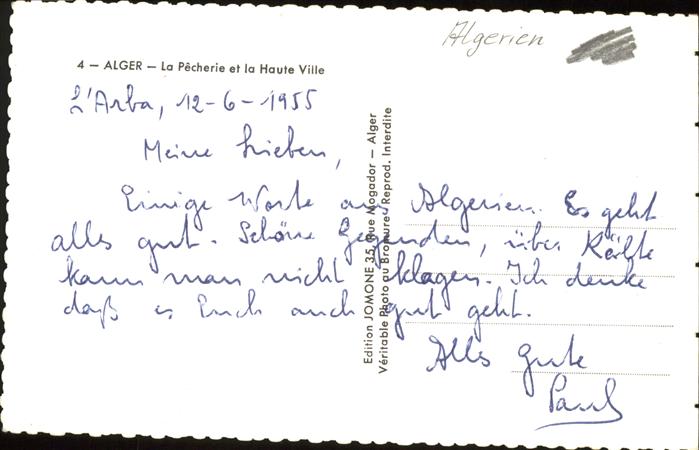 Algerien
4 — ALGER — La Pêcherie et la Haute Ville
L'Arba, 12-6-1955
Meine Lieben,
Einige Worte aus Algerien. Es geht
alles gut. Schöne Gegenden, über Kälte
kann man nicht klagen. Ich denke
daß es Euch auch gut geht.
Alles Gute
Paul
Edition JOMONE 35, Rue Mogador — Alger
Véritable Photo au Bromure - Reprod. Interdite